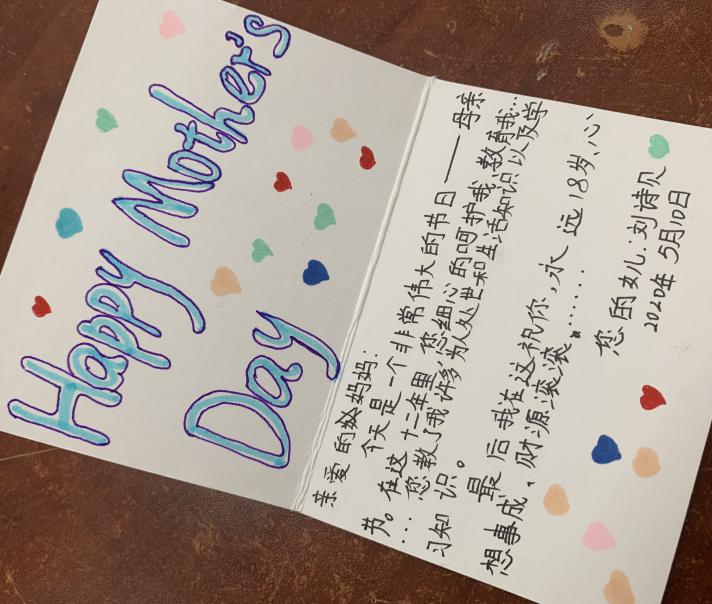 Happy Mother's
Day
亲爱的妈妈:
今天是一个非常伟大的节日——母亲
节。在这十二年里,您细心的呵护我、教育我...
...您教了我许多为人处世和生活知识以及学
习知识。
最后我在这祝你,永远18岁、心
想事成、财源滚滚.......
您的女儿:刘诗贝
2020年5月10日